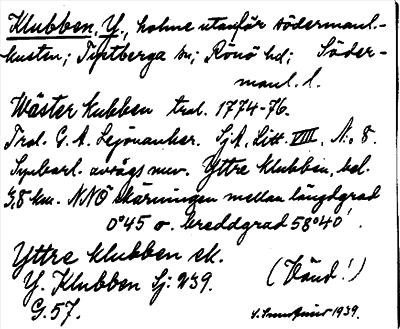 Klubben, Y., holme utanför södermanl.-
kusten; Tystberga sn; Rönö hd; Söder-
manl. l.
Wäster kubben trol. 1774-76.
Trol. G. A. Lejonanker. SjA, Litt. VIII, N:o 8.
Synbarl. avvägs nuv. Yttre Klubben, bel.
6,8 km. NNÖ skärningen mellan längdgrad
0°45 o. breddgrad 58°40'.
Yttre klubben ek.
Y. Klubben Sj: 239.
G. 57.
(Vänd!)
1939.